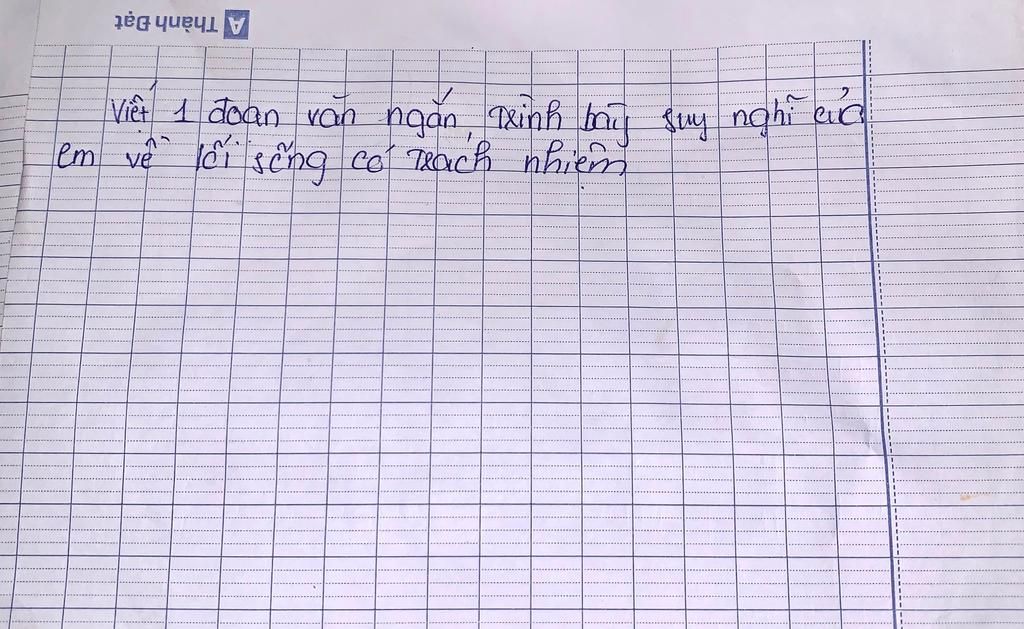 A Thành Đạt
Viết 1 đoạn văn ngắn, trình bày suy nghĩ của
em về lối sống có trách nhiệm